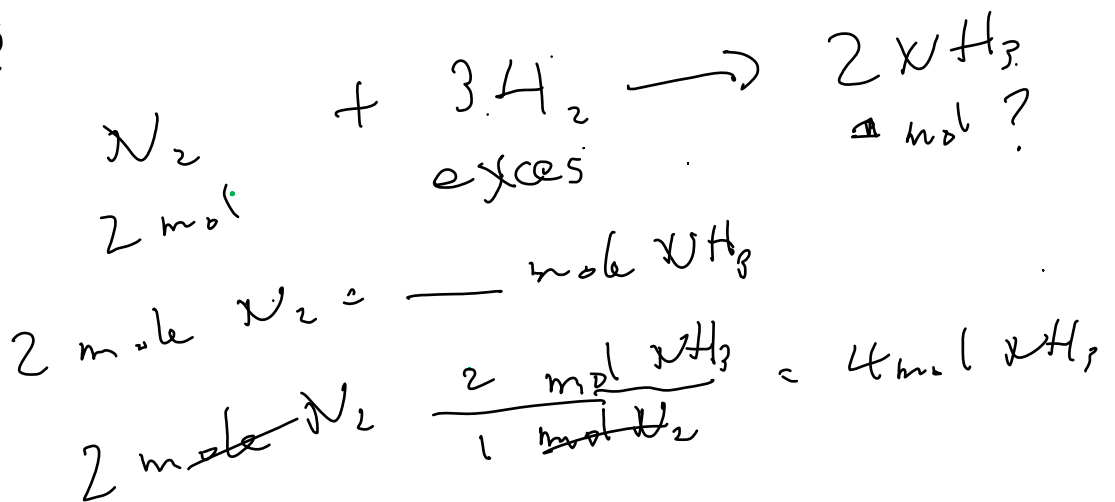 N₂ + 3H₂ ⟶ 2 NH₃
2 mol exces mol ?
2 mole N₂ = ___ mole NH₃
2 mole N₂ 2 mol NH₃ / 1 mol N₂ = 4 mol NH₃